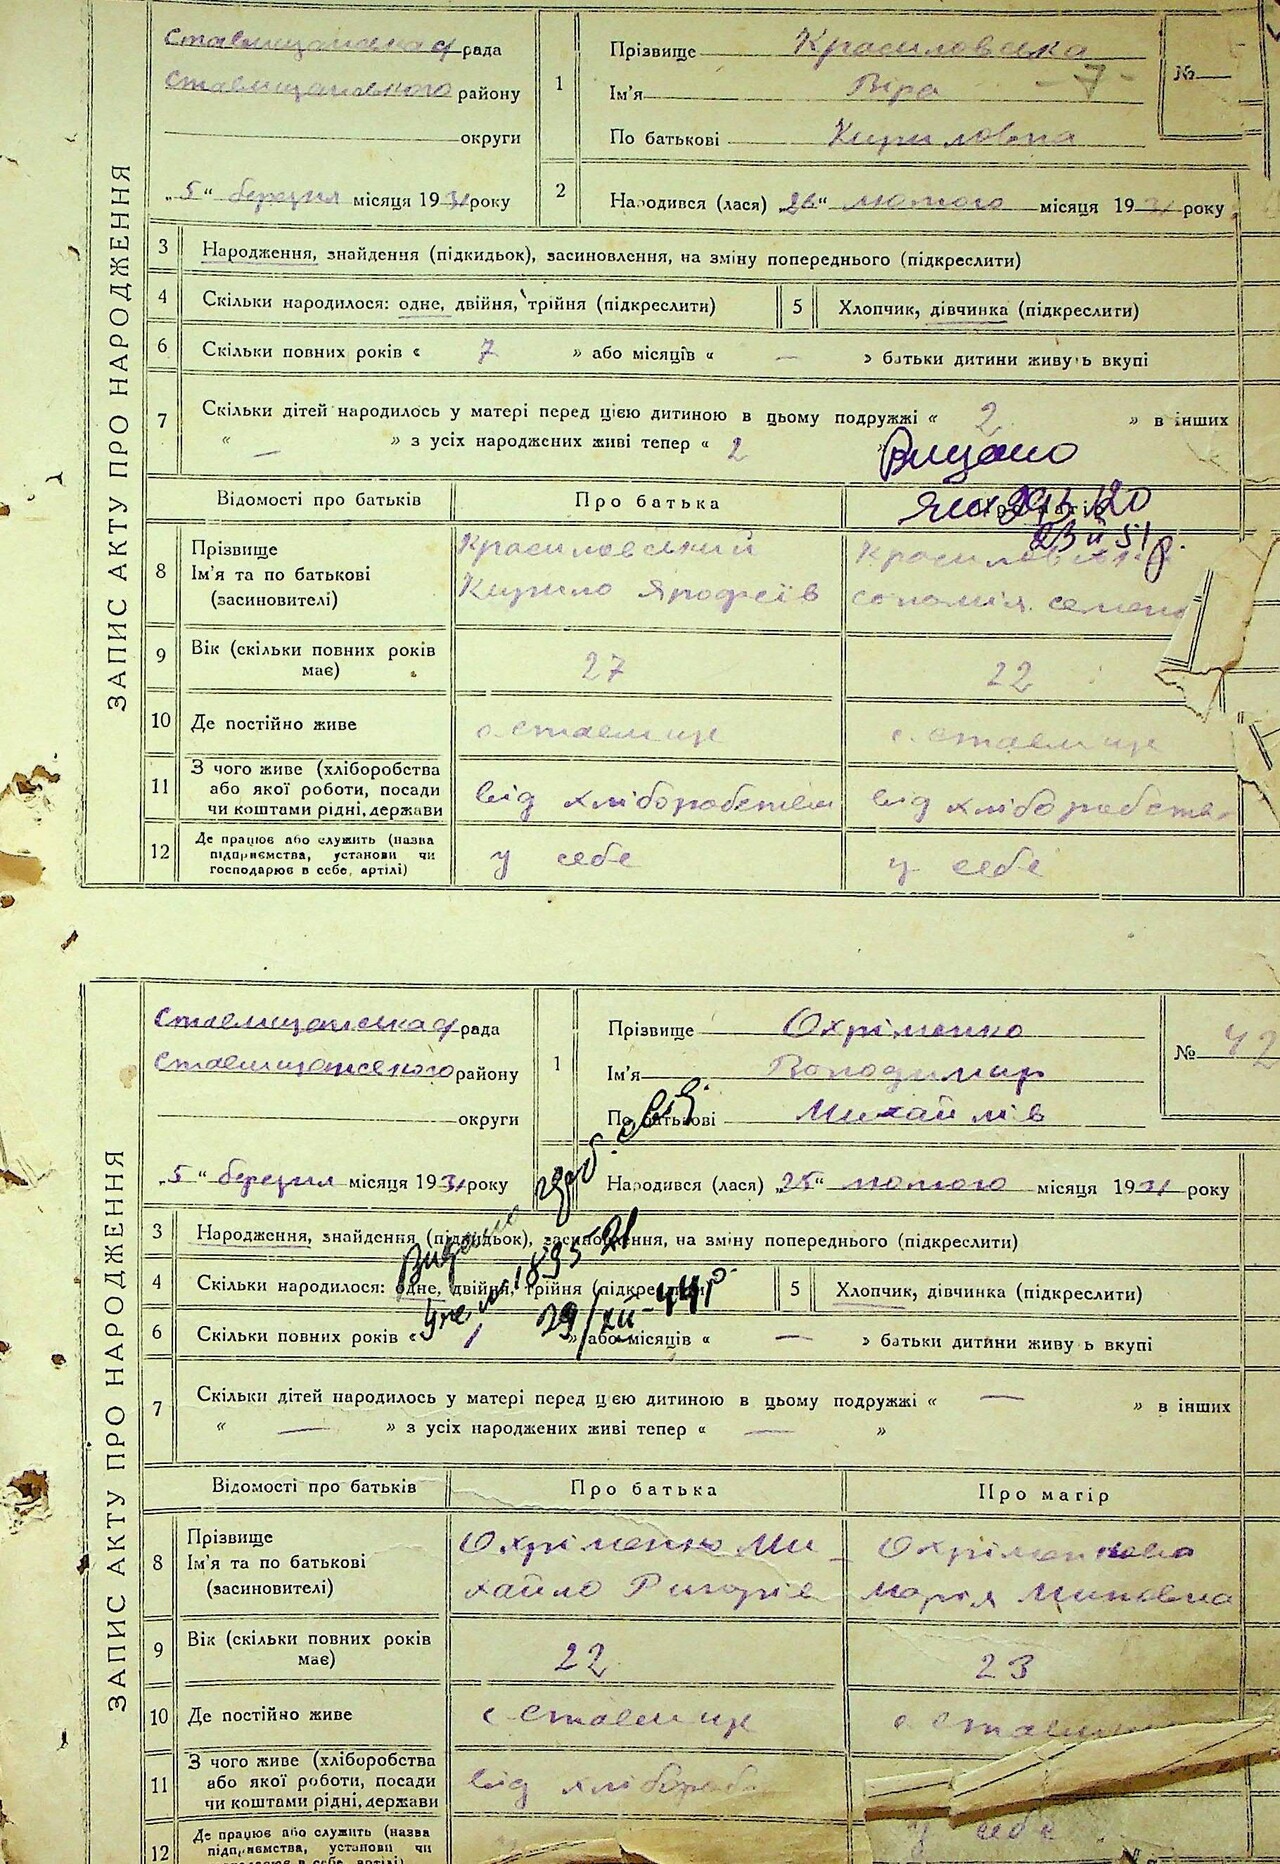 ЗАПИС АКТУ ПРО НАРОДЖЕННЯ
Ставищанська рада
Ставищанського району
округи
„5“ березня місяця 1931 року
1
Прізвище Красиловська
Ім'я Віра - 7 -
По батькові Кириловна
№
2 Народився (лася) „26“ лютого місяця 1931 року
3 Народження, знайдення (підкидьок), засиновлення, на зміну попереднього (підкреслити)
4 Скільки народилося: одне, двійня, трійня (підкреслити) 5 Хлопчик, дівчинка (підкреслити)
6 Скільки повних років « 7 » або місяців « — » батьки дитини живуть вкупі
7 Скільки дітей народилось у матері перед цією дитиною в цьому подружжі « 2 » в інших
« — » з усіх народжених живі тепер « 2 »
Видано
23 II 51 р.
Відомості про батьків Про батька
8 Прізвище Ім'я та по батькові (засиновителі)
Красиловський Красиловська
Кирило Ярофеїв Соломія Семен
9 Вік (скільки повних років має) 27 22
10 Де постійно живе с. Ставище с. Ставище
11 З чого живе (хліборобства або якої роботи, посади чи коштами рідні, держави від хліборобства від хліборобства
12 Де працює або служить (назва підприємства, установи чи господарює в себе, артілі) у себе у себе
ЗАПИС АКТУ ПРО НАРОДЖЕННЯ
Ставищанська рада
Ставищанського району
округи
„5“ березня місяця 1931 року
1
Прізвище Охріменко
Ім'я Володимир
По батькові Михайлів
№ 42
Народився (лася) „25“ лютого місяця 1931 року
Видано
29/XII-44 р
3 Народження, знайдення (підкидьок), засиновлення, на зміну попереднього (підкреслити)
4 Скільки народилося: одне, двійня, трійня (підкреслити) 5 Хлопчик, дівчинка (підкреслити)
6 Скільки повних років « 1 » або місяців « — » батьки дитини живуть вкупі
7 Скільки дітей народилось у матері перед цією дитиною в цьому подружжі « — » в інших
« — » з усіх народжених живі тепер « — »
Відомості про батьків Про батька Про матір
8 Прізвище Ім'я та по батькові (засиновителі)
Охріменко Ми- Охріменкова
хайло Григорів Марія Миновна
9 Вік (скільки повних років має) 22 23
10 Де постійно живе с Ставище с. Ставище
11 З чого живе (хліборобства або якої роботи, посади чи коштами рідні, держави від хлібороб
12 Де працює або служить (назва підприємства, установи чи у себе